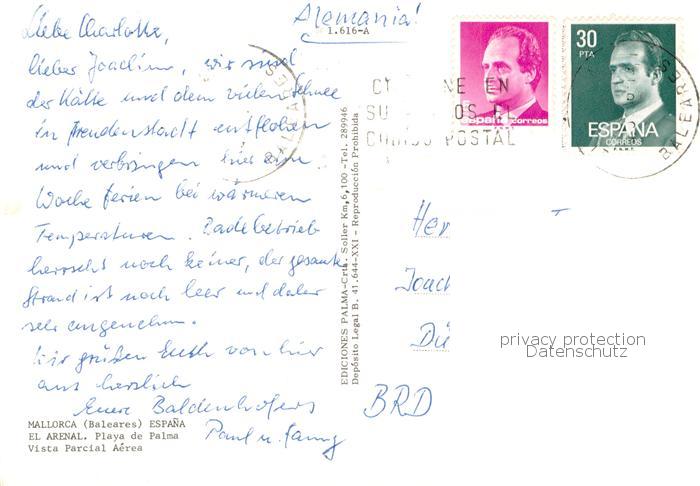 Alemania!
1.616-A
Liebe Charlotte,
lieber Joachim, wir sind
der Kälte und dem vielen Schnee
in Freudenstadt entflohen
und verbringen hier eine
Woche Ferien bei wärmeren
Temperaturen. Badebetrieb
herrscht noch keiner, der gesamte
Strand ist noch leer und daher
sehr angenehm.
Wir grüßen Euch von hier
aus herzlich
Eure Baldenhofers
Paul u.
MALLORCA (Baleares) ESPAÑA
EL ARENAL. Playa de Palma
Vista Parcial Aérea
EDICIONES PALMA-Crta. Soller Km,6,100 -Tel. 289946
Depósito Legal B. 41.644-XXI - Reproducción Prohibida
NE EN
POSTAL
BALEARES
España correos
30
PTA
ESPAÑA
CORREOS
F.N.M.T.
Her
Joach
Dü
BRD
privacy protection
Datenschutz